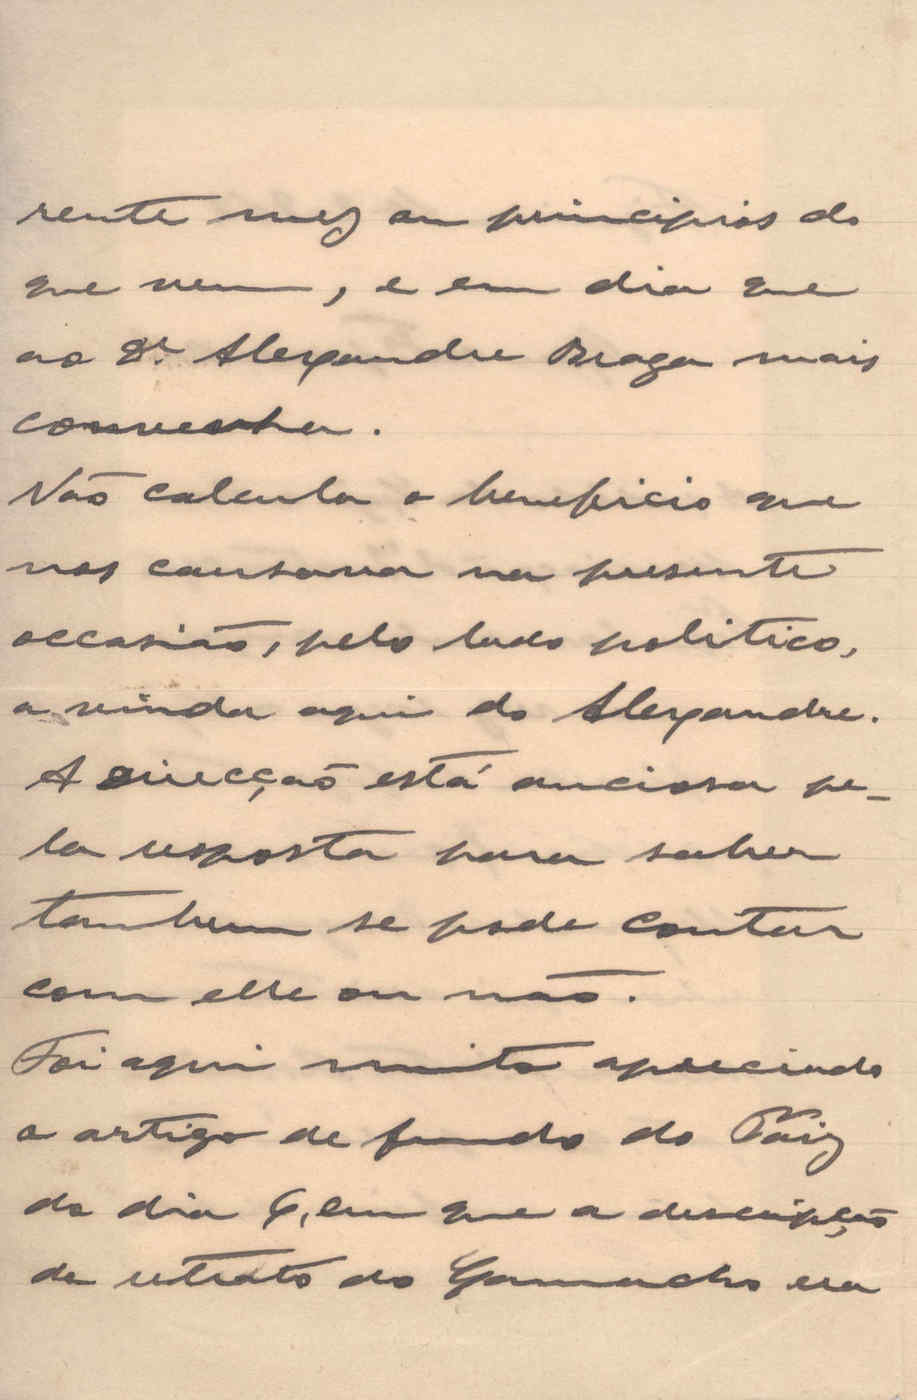 rente mez ou principios do
que vem, e em dia que
ao Dr. Alexandre Braga mais
convenha.
Não calcula o beneficio que
nos causava na presente
occasião, pelo lado politico,
a vinda aqui do Alexandre.
A direcção está anciosa pe-
la resposta para saber
tambem se pode contar
com elle ou não.
Foi aqui muito apreciado
o artigo de fundo do Paiz
do dia 6, em que a descripção
de retrato do Camacho era